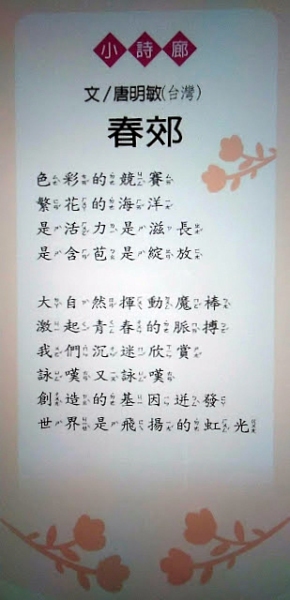 小詩廊
文/唐明敏(台灣)
春郊
色彩的競賽
繁花的海洋
是活力是滋長
是含苞是綻放
大自然揮動魔棒
激起青春的脈搏
我們沉迷欣賞
詠嘆又詠嘆
創造的基因迸發
世界是飛揚的虹光